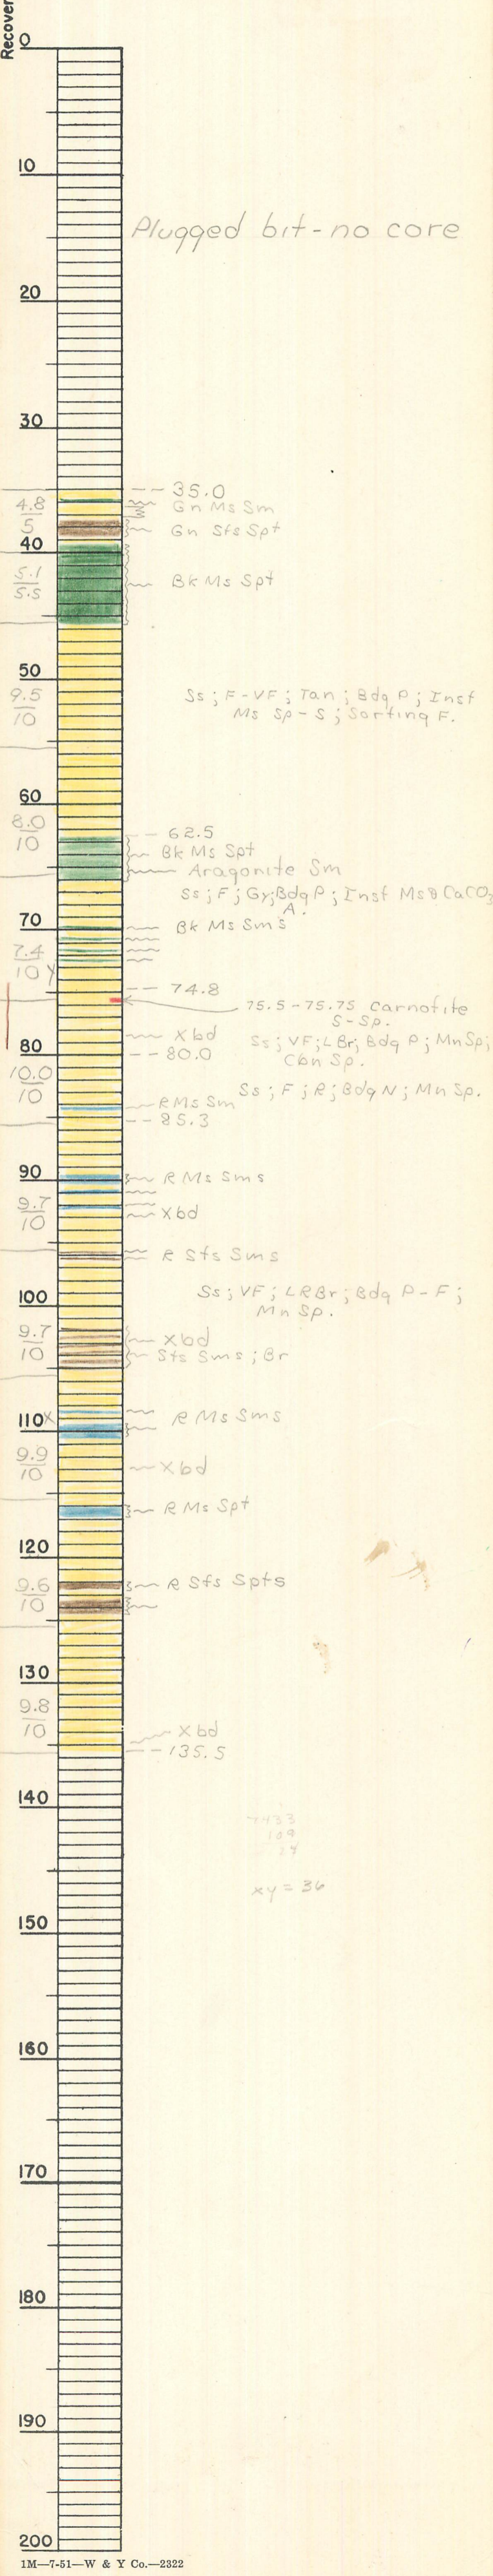 Recover
0
10
Plugged bit - no core
20
30
-- 35.0
4.8
5
Gn Ms Sm
Gn Sts Spt
40
5.1
5.5
Bk Ms Spt
50
9.5
10
Ss; F-VF; Tan; Bdg P; Inst
Ms Sp-S; Sorting F.
60
8.0
10
-- 62.5
Bk Ms Spt
Aragonite Sm
Ss; F; Gy; Bdg P; Inst Ms & CaCO3
A.
70
Bk Ms Sms
7.4
10 Y
-- 74.8
75.5-75.75 Carnotite
S-Sp.
Xbd
Ss; VF; LBr; Bdg P; MnSp;
Cbn Sp.
80
-- 80.0
10.0
10
Ss; F; R; Bdg N; Mn Sp.
R Ms Sm
-- 85.3
90
R Ms Sms
9.7
10
Xbd
R Sts Sms
Ss; VF; LRBr; Bdg P-F;
Mn Sp.
100
9.7
10
Xbd
Sts Sms; Br
110 X
R Ms Sms
9.9
10
Xbd
R Ms Spt
120
9.6
10
R Sts Spts
130
9.8
10
Xbd
-- 135.5
140
109
xy = 36
150
160
170
180
190
200
1M—7-51—W & Y Co.—2322